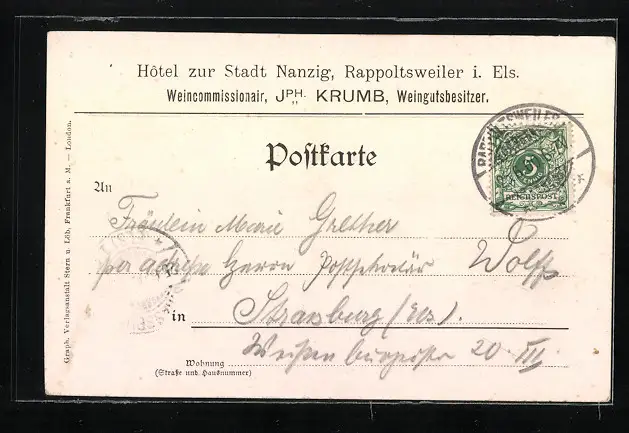 Hôtel zur Stadt Nanzig, Rappoltsweiler i. Els.
Weincommissionair, JPH. KRUMB, Weingutsbesitzer.
Postkarte
RAPPOLTSWEILER
5
REICHSPOST
An
Fräulein Marie Grether
per adresse Herrn Postsekretär Wolff
in Strassburg (Els).
Weissenburgerstr 20 III
Wohnung
(Straße und Hausnummer)
Graph. Verlagsanstalt Stern u. Löb, Frankfurt a. M. – London.